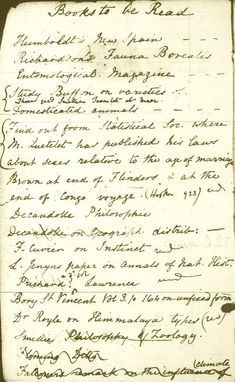 Books to be Read
Humboldt's New Spain - - -
Richardson's Fauna Borealis
Entomological Magazine -
Study Buffon on varieties of
Domesticated animals -
Find out from Statistical Soc. where
M. Quetelet has published his laws
about sexes relative to the age of marriage
Brown at end of Flinders & at the
end of Congo voyage. (Hooker 923) read
Decandolle Philosophie
Decandolle on Geograph distrib: -
F. Cuvier on Instinct read
L. Jenyns paper on Annals of Nat. Hist.
Prichard; Lawrence read
Bory St Vincent Vol 3. p 164 on unfixed form
Dr Royle on Himmalaya types (read)
Smellie Philosophy of Zoology.
Fleming Ditto
Falconer remark on the influence of climate